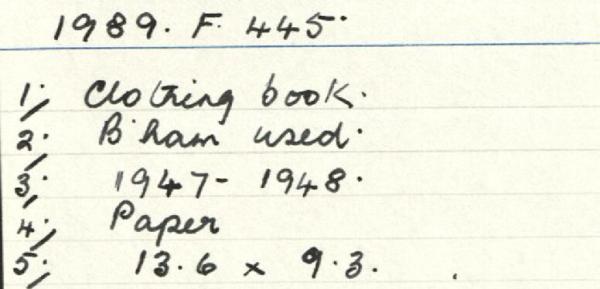 1989. F. 445.
1. Clothing book.
2. B'ham used.
3. 1947- 1948.
4. Paper
5. 13.6 x 9.3.